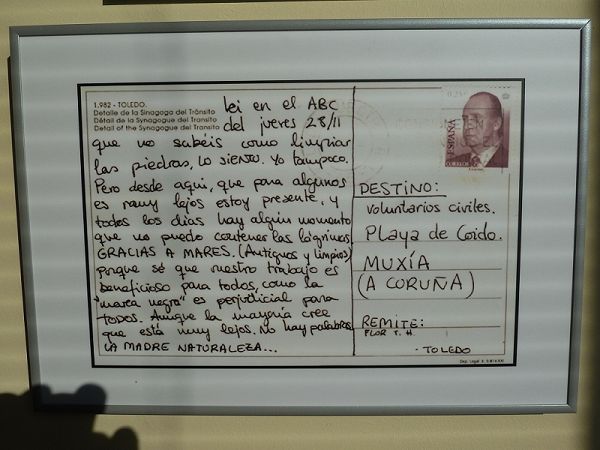 1.982 - TOLEDO.
Detalle de la Sinagoga del Tránsito
Détail de la Synagogue del Transito
Detail of the Synagogue del Transito
Leí en el ABC
del jueves 28/11
que no sabéis como limpiar
las piedras, lo siento. Yo tampoco.
Pero desde aquí, que para algunos
es muy lejos estoy presente, y
todos los días hay algún momento
que no puedo contener las lágrimas.
GRACIAS A MARES. (Antiguos y limpios)
porque sé que vuestro trabajo es
beneficioso para todos, como la
"marea negra" es perjudicial para
TODOS. Aunque la mayoría cree
que está muy lejos. No hay palabras
LA MADRE NATURALEZA...
ESPAÑA
CORREOS
DESTINO:
voluntarios civiles.
Playa de Coido.
MUXÍA
(A CORUÑA)
REMITE:
FLOR T. H.
- TOLEDO